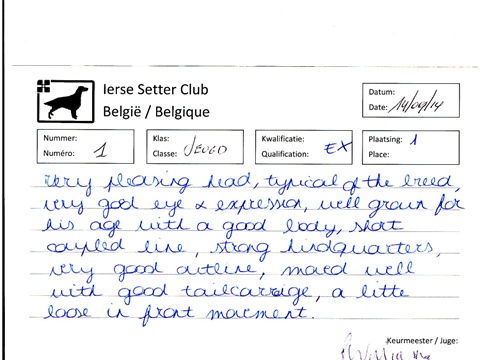 Ierse Setter Club
België / Belgique
Datum:
Date: 14/09/14
Nummer:
Numéro: 1
Klas:
Classe: JEUGD
Kwalificatie:
Qualification: EX
Plaatsing: 1
Place:
very pleasing head, typical of the breed,
very good eye & expression, well grown for
his age with a good body, short
coupled line, strong hindquarters,
very good outline, moved well
with good tailcarriage, a litte
loose in front movement.
Keurmeester / Juge: